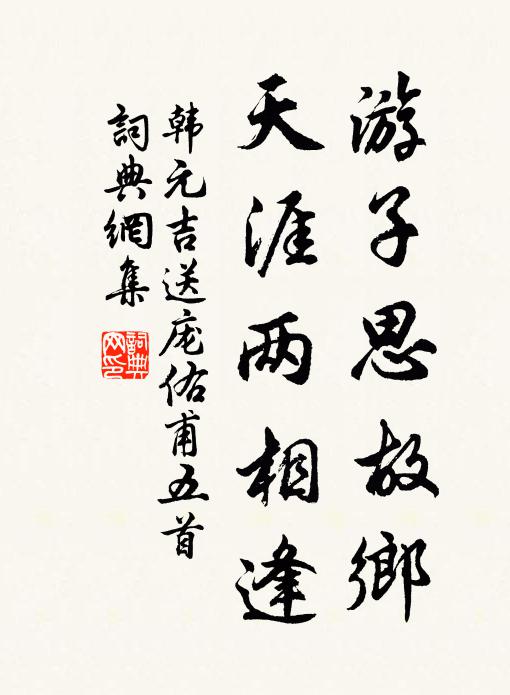 游子思故鄉
天涯两相逢
韩元吉送庞佑甫五首
詞典網集
詞典网印